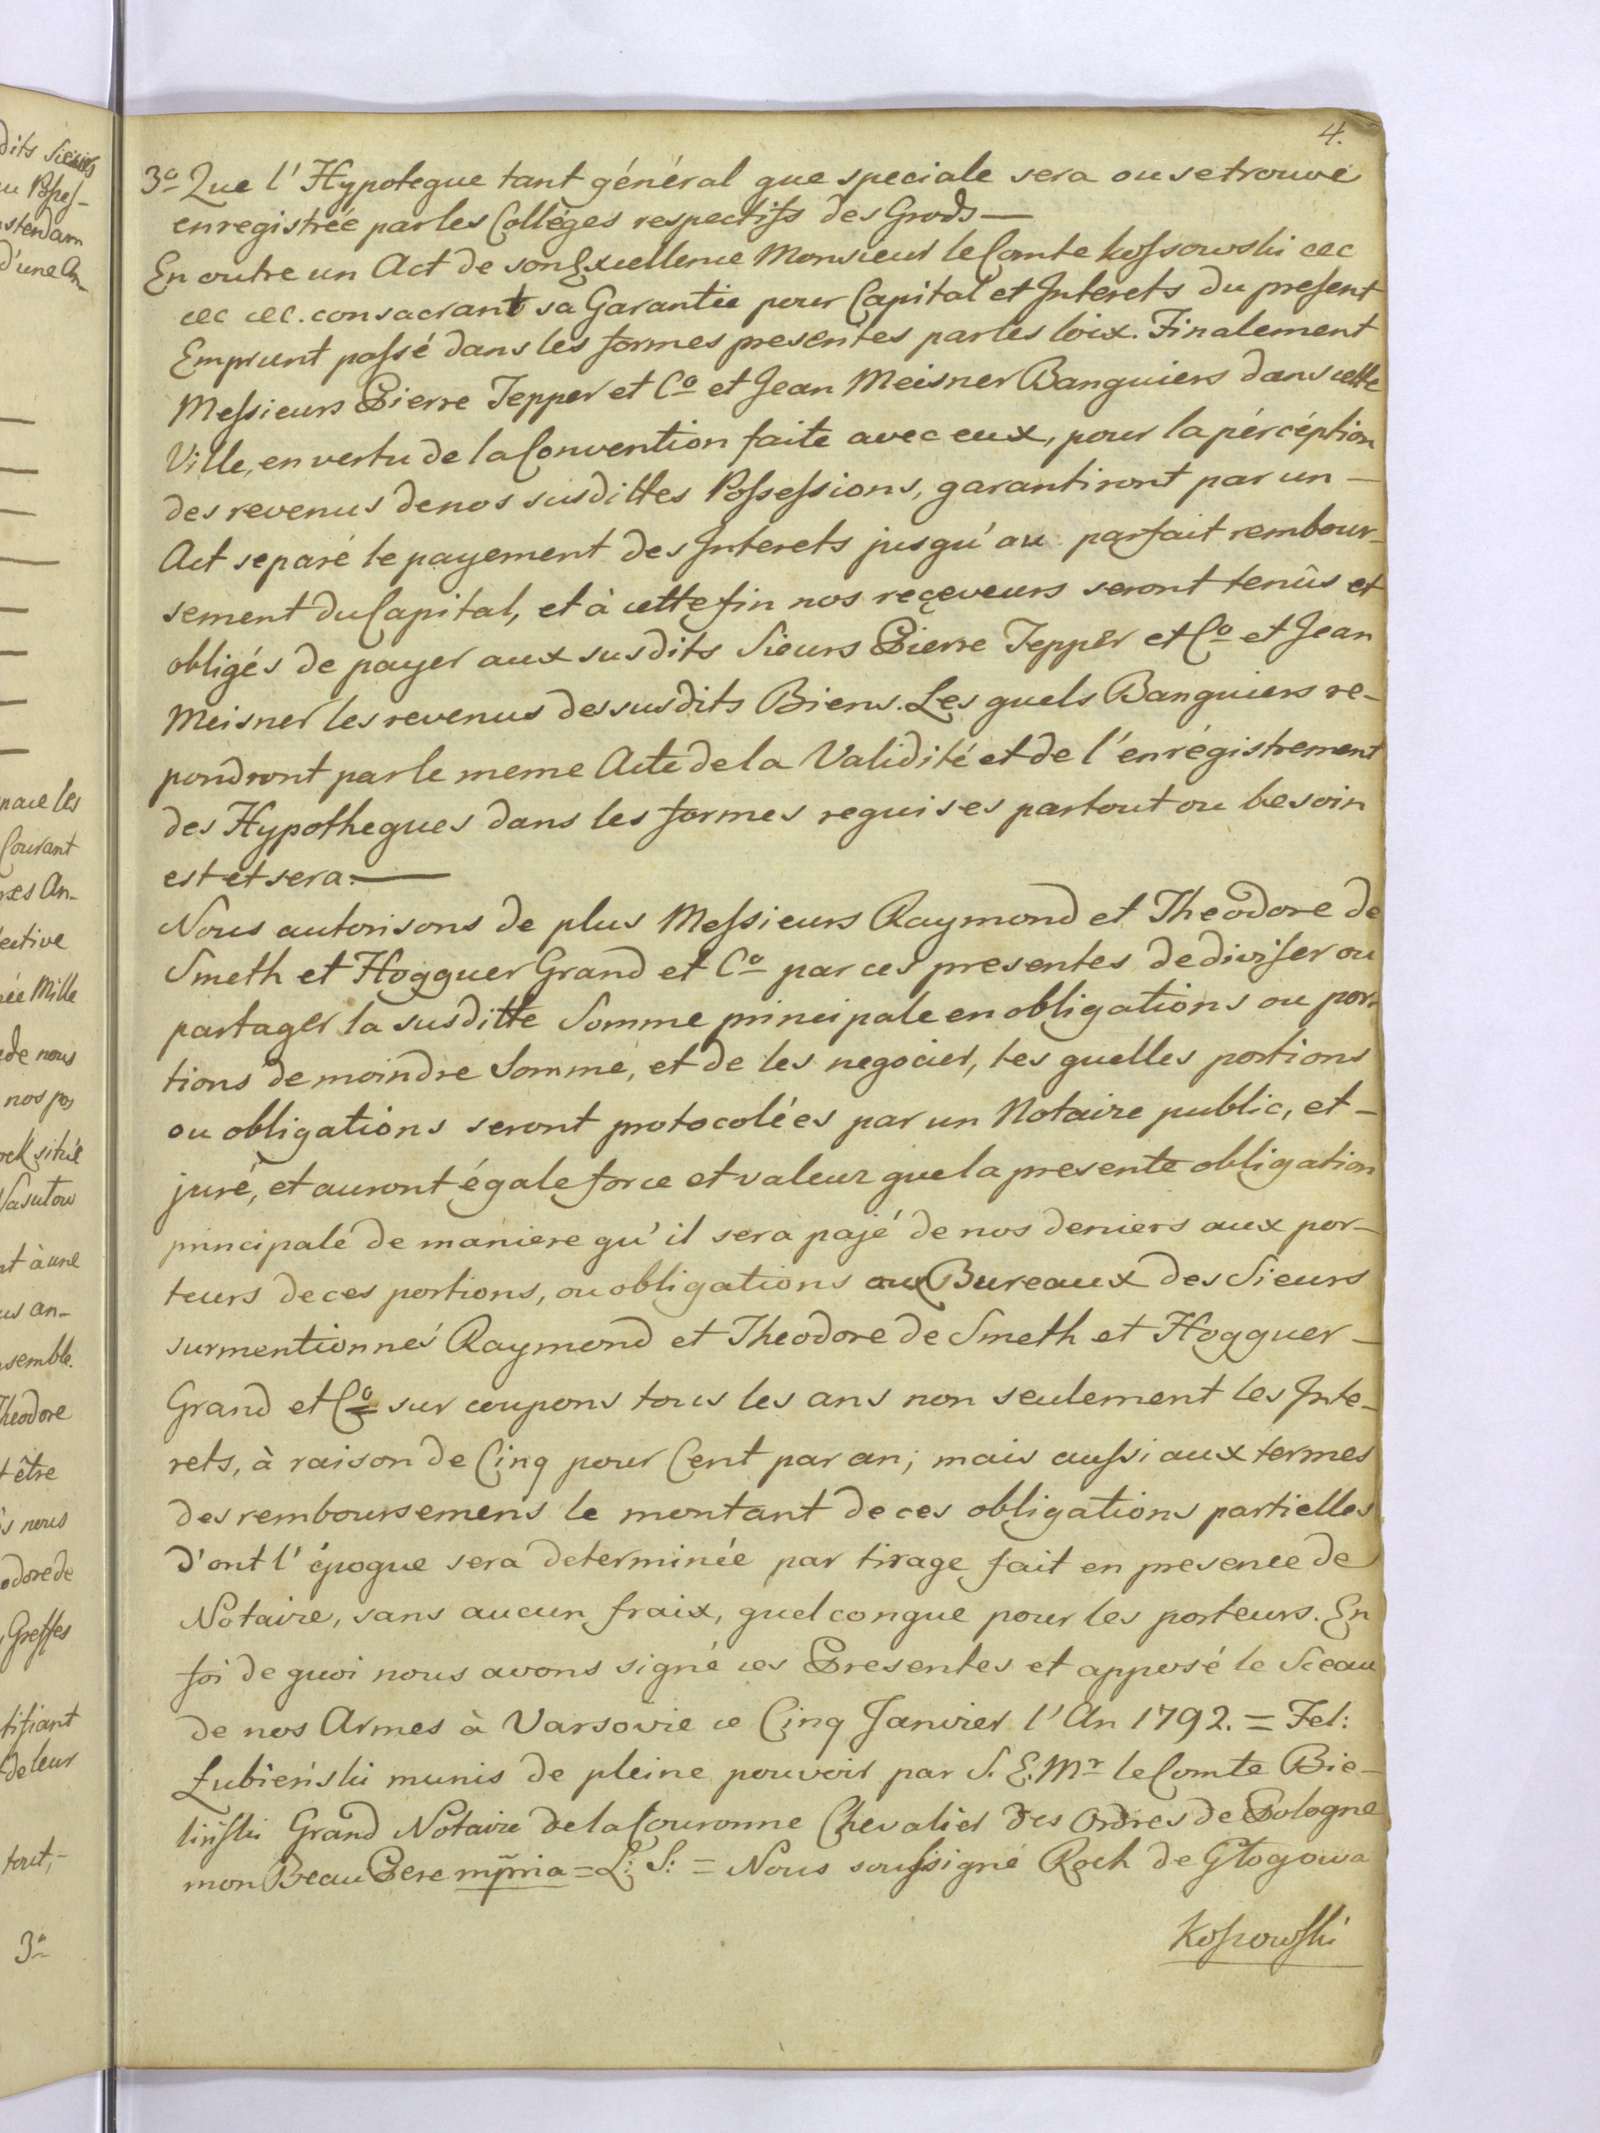 4.
3o Que l'Hypoteque tant général que speciale sera ou se trouve
enregistrée par les Colléges respectifs des Grods —
En outre un Act de son Excellence Monsieur le Comte Kossowski cec
cec cec. consacrant sa Garantie pour Capital et Interets du present
Emprunt passé dans les formes presentes par les loix. Finalement
Messieurs Pierre Tepper et Co et Jean Meisner Banquiers dans cette
Ville, en vertu de la Convention faite avec eux, pour la pércéption
des revenus de nos susdittes Possessions, garantiront par un —
Act separé le payement des Interets jusqu'au parfait rembour-
sement du Capital, et à cette fin nos reçeveurs seront tenûs et
obligés de payer aux susdits Sieurs Pierre Tepper et Co et Jean
Meisner les revenus des susdits Biens. Les quels Banquiers re-
pondront par le meme Acte de la Validité et de l'enrégistrement
des Hypotheques dans les formes requises partout ou besoin
est et sera. —
Nous autorisons de plus Messieurs Raymond et Theodore de
Smeth et Hogguer Grand et Co par ces presentes de diviser ou
partager la susditte Somme principale en obligations ou por-
tions de moindre Somme, et de les negocier, les quelles portions
ou obligations seront protocolées par un Notaire public, et —
juré, et auront égale force et valeur que la presente obligation
principale de maniere qu'il sera pajé de nos deniers aux por-
teurs de ces portions, ou obligations aux Bureaux des Sieurs
surmentionnés Raymond et Theodore de Smeth et Hogguer —
Grand et Co sur coupons tous les ans non seulement les Inte-
rets, à raison de Cinq pour Cent par an; mais aussi aux termes
des remboursemens le montant de ces obligations partielles
d'ont l'époque sera determinée par tirage fait en presence de
Notaire, sans aucun fraix, quelconque pour les porteurs. En
foi de quoi nous avons signé ces Presentes et apposé le Sceau
de nos Armes à Varsovie ce Cinq Janvier l'An 1792. = Fel:
Łubieński munis de pleine pouvoir par S. E. Mr le Comte Bie-
liński Grand Notaire de la Couronne Chevalier des Ordres de Pologne
mon Beau Pere mpria = L: S: = Nous soussigné Roch de Głogowa
Kossowski
dits Sieurs
au Posses-
mstendam
d'une An-
Courant
ective
ée Mille
de nous
nos pos
rck située
Vasutow
nt à une
us an-
semble.
Theodore
t être
s nous
odore de
Greffes
tifiant
de leur
tout, -
3o